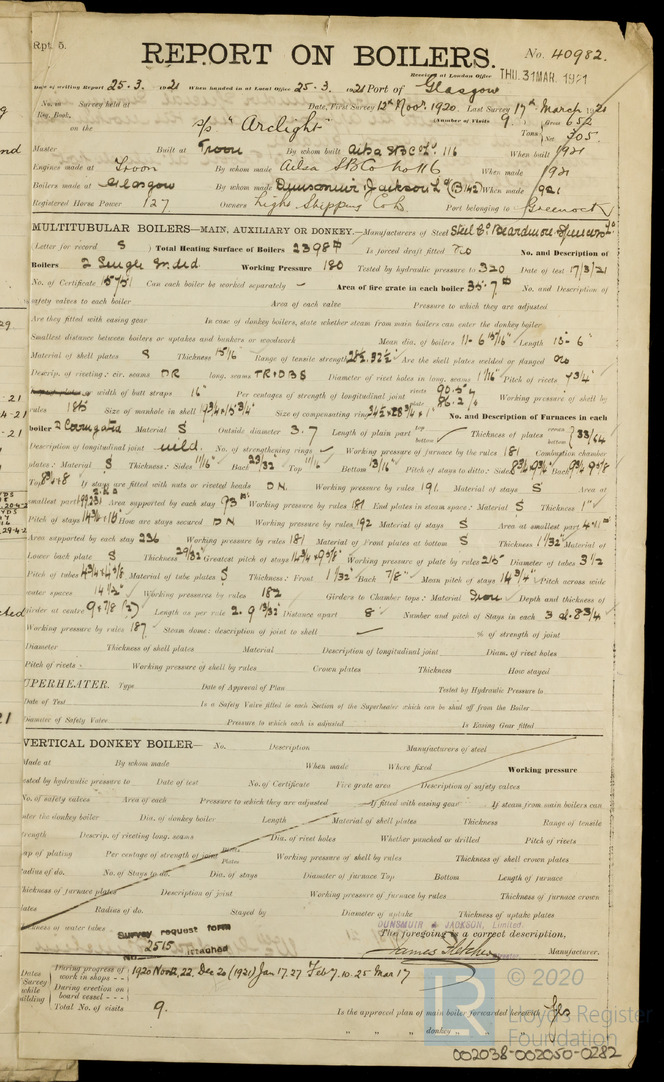 Rpt. 5.
REPORT ON BOILERS.
No. 40982.
Received at London Office THU. 31 MAR. 1921
Date of writing Report 25-3. 1921 When handed in at Local Office 25-3. 1921 Port of Glasgow
No. in Survey held at Date, First Survey 12th Novr. 1920. Last Survey 17th March 1921
Reg. Book. (Number of Visits 9.) Gross 652
on the s/s "Arclight" Tons Net 305.
Master Built at Troon By whom built Ailsa S B Co Ld. 116 When built 1921
Engines made at Troon By whom made Ailsa S B Co No 116 When made 1921
Boilers made at Glasgow By whom made Dunsmuir & Jackson Ld (B 142) When made 1921
Registered Horse Power 127 Owners Light Shipping Co Ld Port belonging to Greenock
MULTITUBULAR BOILERS—MAIN, AUXILIARY OR DONKEY.—Manufacturers of Steel Steel Co Beardmore
(Letter for record S) Total Heating Surface of Boilers 2398 Is forced draft fitted No No. and Description of
Boilers 2 Single Ended Working Pressure 180 Tested by hydraulic pressure to 320 Date of test 17/3/21
No. of Certificate 15751 Can each boiler be worked separately Area of fire grate in each boiler 35.7 No. and Description of
safety valves to each boiler Area of each valve Pressure to which they are adjusted
Are they fitted with easing gear In case of donkey boilers, state whether steam from main boilers can enter the donkey boiler
Smallest distance between boilers or uptakes and bunkers or woodwork Mean dia. of boilers 11-6 13/16" Length 10-6
Material of shell plates S Thickness 15/16 Range of tensile strength 28½.32½ Are the shell plates welded or flanged No
Descrip. of riveting: cir. seams DR long. seams TR+DBS Diameter of rivet holes in long. seams 1 1/16" Pitch of rivets 7 3/4
width of butt straps 16" Per centages of strength of longitudinal joint rivets 90.5 plate 86.2 Working pressure of shell by
rules 183 Size of manhole in shell Size of compensating ring No. and Description of Furnaces in each
boiler 2 Corrugated Material S Outside diameter 3.7 Length of plain part top bottom Thickness of plates crown bottom 33/64
Description of longitudinal joint weld. No. of strengthening rings Working pressure of furnace by the rules 181 Combustion chamber
plates: Material S Thickness: Sides 11/16" Back 23/32 Top 11/16 Bottom 13/16" Pitch of stays to ditto: Sides Back
Top If stays are fitted with nuts or riveted heads D N. Working pressure by rules 191. Material of stays S Area at
smallest part Area supported by each stay 93 Working pressure by rules 181 End plates in steam space: Material S Thickness 1"
Pitch of stays How are stays secured D N Working pressure by rules 192 Material of stays S Area at smallest part
Area supported by each stay 236 Working pressure by rules 181 Material of Front plates at bottom S Thickness 1/32" Material of
Lower back plate S Thickness 29/32" Greatest pitch of stays Working pressure of plate by rules 215 Diameter of tubes 3 1/2
Pitch of tubes Material of tube plates S Thickness: Front 1/32" Back 7/8" Mean pitch of stays Pitch across wide
water spaces 14½" Working pressures by rules 182 Girders to Chamber tops: Material Iron Depth and thickness of
girder at centre 9 × 7/8 (2) Length as per rule 2.9 13/32" Distance apart 8" Number and pitch of Stays in each 3 at 8 3/4
Working pressure by rules 187 Steam dome: description of joint to shell % of strength of joint
Diameter Thickness of shell plates Material Description of longitudinal joint Diam. of rivet holes
Pitch of rivets Working pressure of shell by rules Crown plates Thickness How stayed
UPERHEATER. Type Date of Approval of Plan Tested by Hydraulic Pressure to
Date of Test Is a Safety Valve fitted in each Section of the Superheater which can be shut off from the Boiler
Diameter of Safety Valve Pressure to which each is adjusted Is Easing Gear fitted
VERTICAL DONKEY BOILER— No. Description Manufacturers of steel
Made at By whom made When made Where fixed Working pressure
ested by hydraulic pressure to Date of test No. of Certificate Fire grate area Description of safety valves
No. of safety valves Area of each Pressure to which they are adjusted If fitted with easing gear If steam from main boilers can
nter the donkey boiler Dia. of donkey boiler Length Material of shell plates Thickness Range of tensile
trength Descrip. of riveting long. seams Dia. of rivet holes Whether punched or drilled Pitch of rivets
ap of plating Per centage of strength of joint Rivets Plates Working pressure of shell by rules Thickness of shell crown plates
adius of do. No. of Stays to do. Dia. of stays Diameter of furnace Top Bottom Length of furnace
hickness of furnace plates Description of joint Working pressure of furnace by rules Thickness of furnace crown
lates Radius of do. Stayed by Diameter of uptake Thickness of uptake plates
hickness of water tubes
Survey request form
No. 2515 attached
DUNSMUIR & JACKSON, Limited.
The foregoing is a correct description,
James Fletcher Manufacturer.
Dates of Survey while building
During progress of work in shops - - 1920 Nov 12. 22. Dec 20 (1921) Jan 17. 27 Feb 7. 10. 25 Mar 17
During erection on board vessel - - -
Total No. of visits 9.
Is the approved plan of main boiler forwarded herewith Yes
" " " donkey " "
© 2020
Lloyd's Register
Foundation
002038-002050-0282